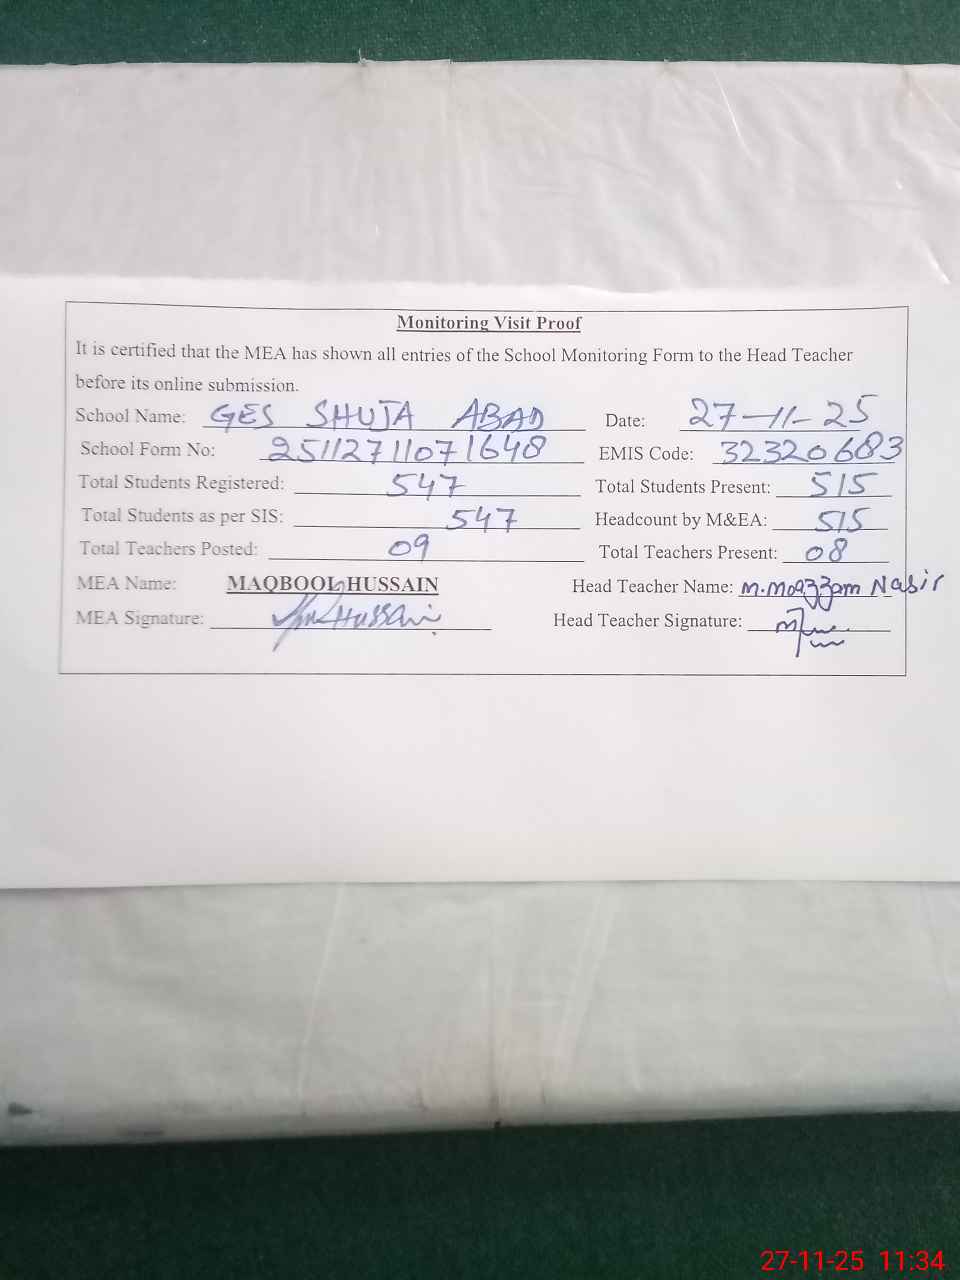 Monitoring Visit Proof
It is certified that the MEA has shown all entries of the School Monitoring Form to the Head Teacher
before its online submission.
School Name: GES SHUJA ABAD Date: 27-11-25
School Form No: 25112711071648 EMIS Code: 32320683
Total Students Registered: 547 Total Students Present: 515
Total Students as per SIS: 547 Headcount by M&EA: 515
Total Teachers Posted: 09 Total Teachers Present: 08
MEA Name: MAQBOOL HUSSAIN Head Teacher Name: M.Moazzam Nasir
MEA Signature: Hussain Head Teacher Signature:
27-11-25 11:34